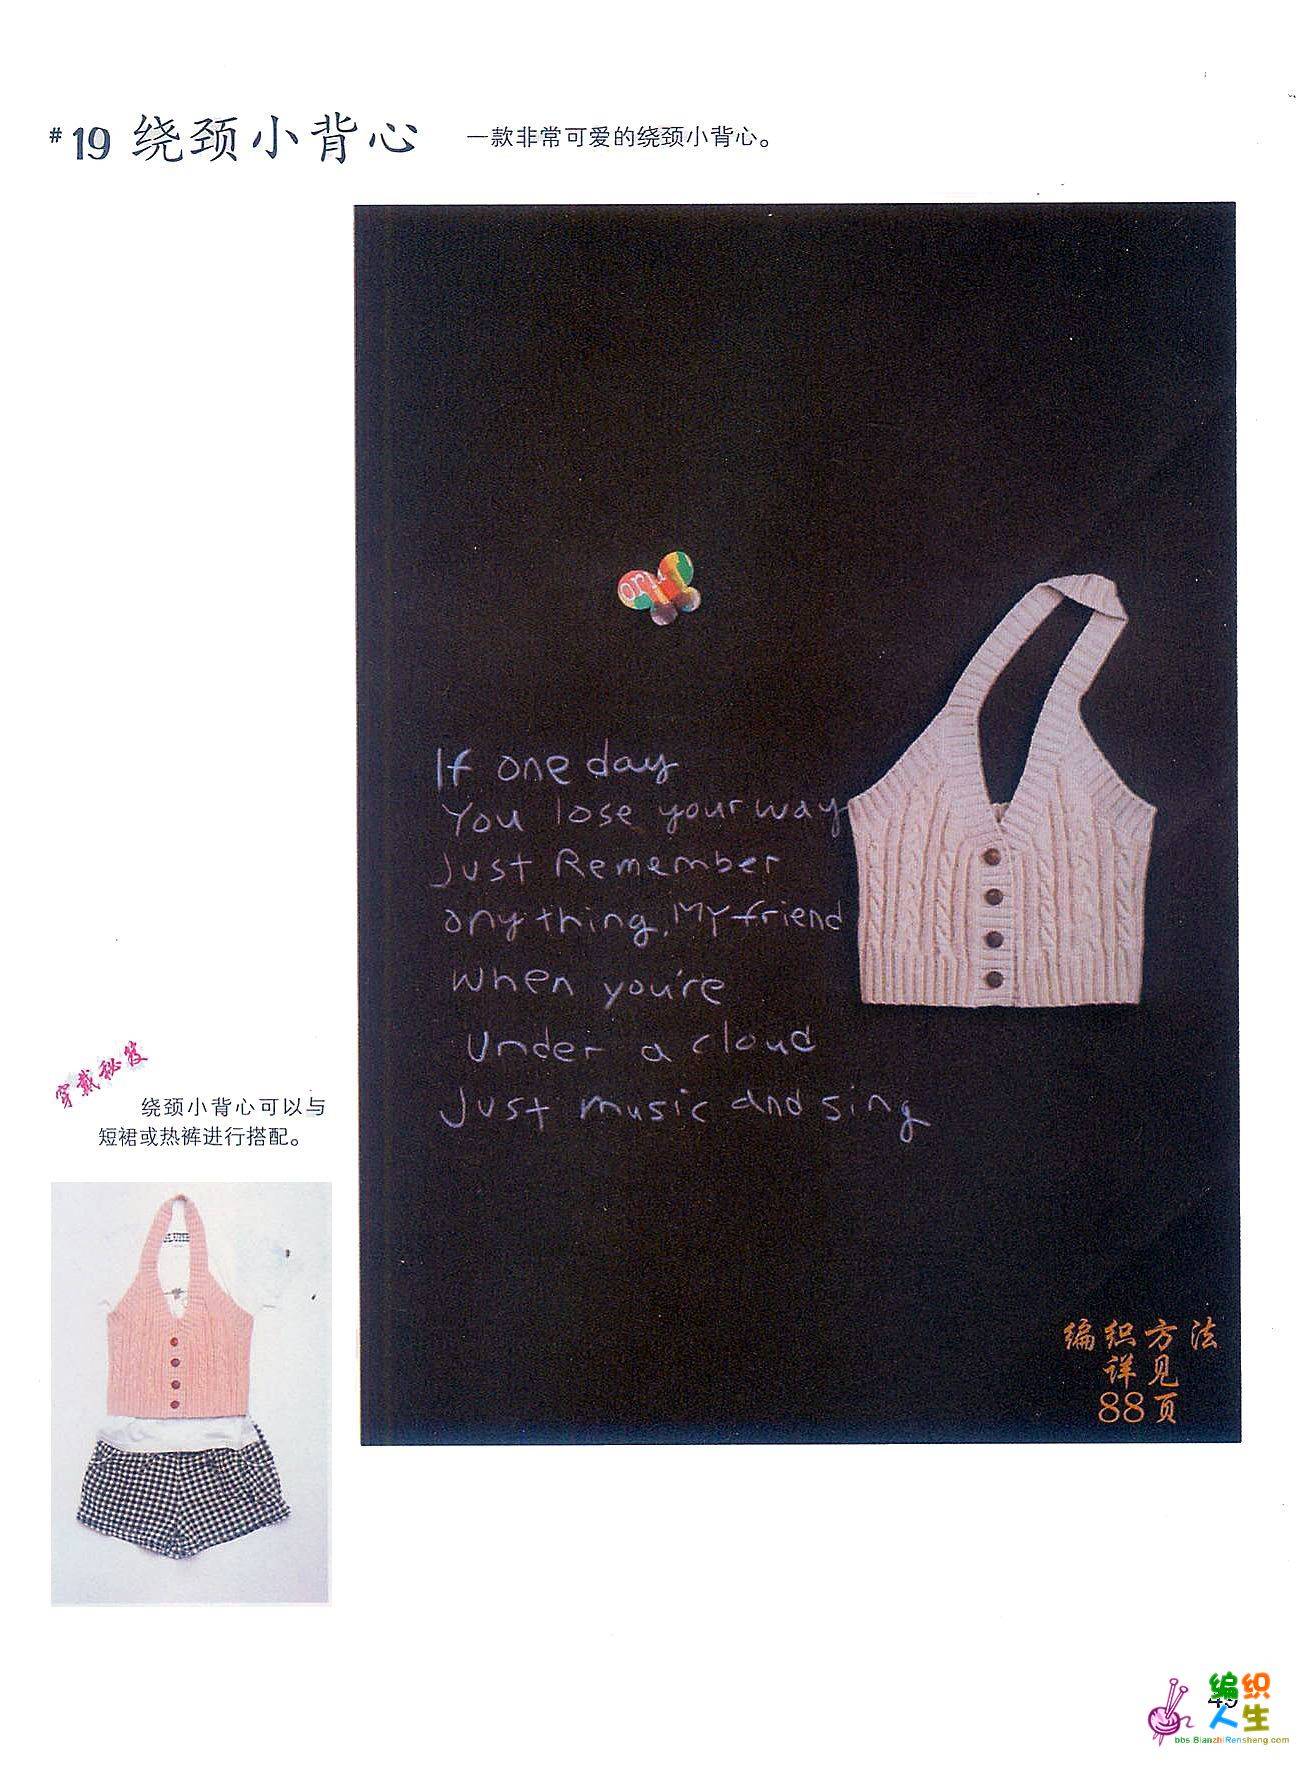 #19 绕颈小背心 一款非常可爱的绕颈小背心。
If one day
You lose your way
Just Remember
onything, MY friend
When you're
Under a cloud
Just music and sing
穿戴秘笈
绕颈小背心可以与
短裙或热裤进行搭配。
编织方法
详见
88页
编织
人生
bbs.BianzhiRensheng.com